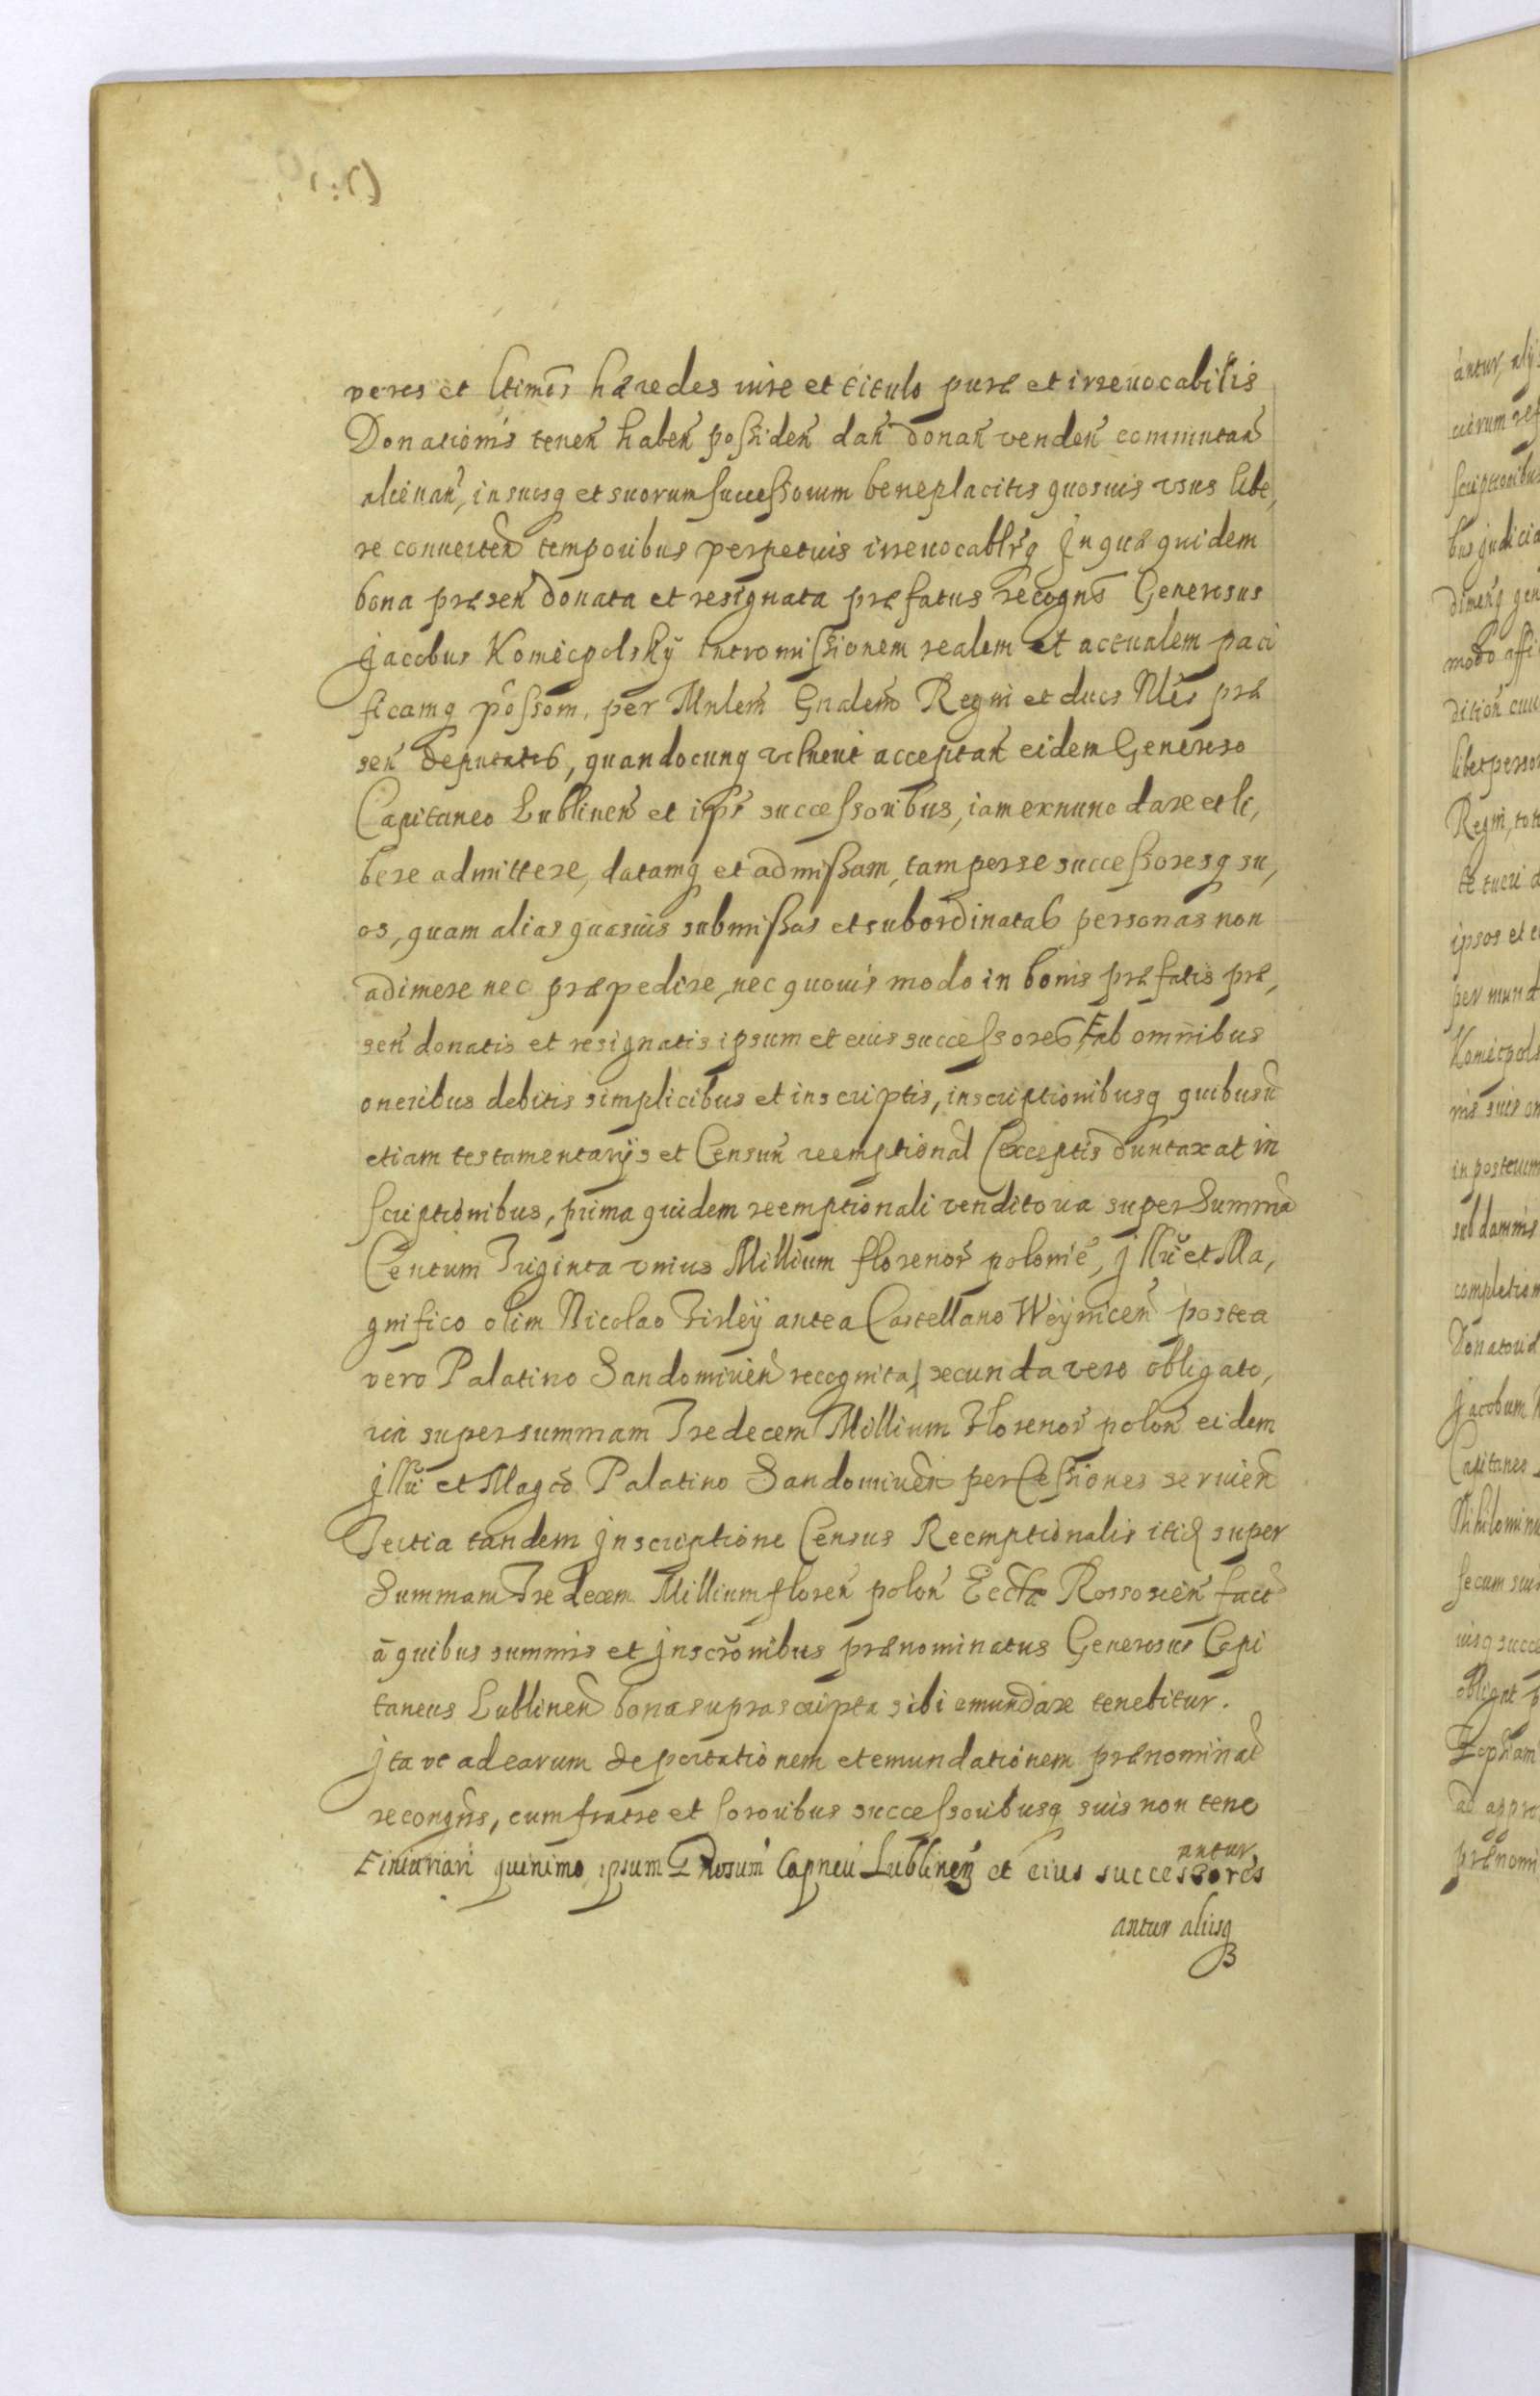 veros et ltimos hæredes iure et titulo puræ et irreuocabilis
Donationis tenen̄ haben̄ possiden̄ dan̄ donan̄ venden̄ commutan̄
alienan̄, in suosq et suorum successorum beneplacitis quosuis vsus libe,
re conuerten̄ temporibus perpetuis irreuocablrq Jn quæ quidem
bona præsen̄ donata et resignata præfatus recogn̄s Generosus
Jacobus Komiecpolsky intromissionem realem et actualem paci
ficamq possom, per Mnlem Gnalem Regni et ducs Nles præ
sen̄ deputatis, quandocunq voluerit acceptan̄ eidem Generoso
Capitaneo Lublinen̄ et ipsˢ successoribus, iam exnunc dare et li,
bere admittere, datamq et admissam, tam per se successoresq su,
os, quam alias quasuis submissas et subordinatas personas non
adimere nec præpedire, nec quouis modo in bonis præfatis præ,
sen̄ donatis et resignatis ipsum et eius successores Ɛ ab omnibus
oneribus debitis simplicibus et inscriptis, inscriptionibusq quibusu̅
etiam testamentarijs et Censuu̅ reemptional (exceptis duntaxat in
scriptionibus, prima quidem reemptionali venditoria super Summa̅
Centum Triginta vnius Millium florenor̄ polonie, Jllu̅ et Ma,
gnifico olim Nicolao Firley antea Castellano Woynicen̄ postea
vero Palatino Sandomirien̄ recognita, secunda vero obligato,
ria super summam Tredecem Millium Florenor̄ polon̄ eidem
Jllu̅ et Magco Palatino Sandomirien̄ per Cessiones seruien̄
Tertia tandem Jnscriptione Census Reemptionalis itid super
Summam Tredecem Millium floren̄ polon̄ Eccltæ Rossosien̄ fact
ā quibus summis et Jnscro̅nibus prænominatus Generosus Capi
taneus Lublinen̄ bona suprascripta sibi emundare tenebitur.
Jta vt ad earum deportationem et emundationem prænominat̄
recongn̄s, cum fratre et sororibus successoribusq suis non tene
antur
Ɛ iniuriari quinimo ipsum Gnosum Capneu̅ Lublinen̄ et eius successores
antur aliisq